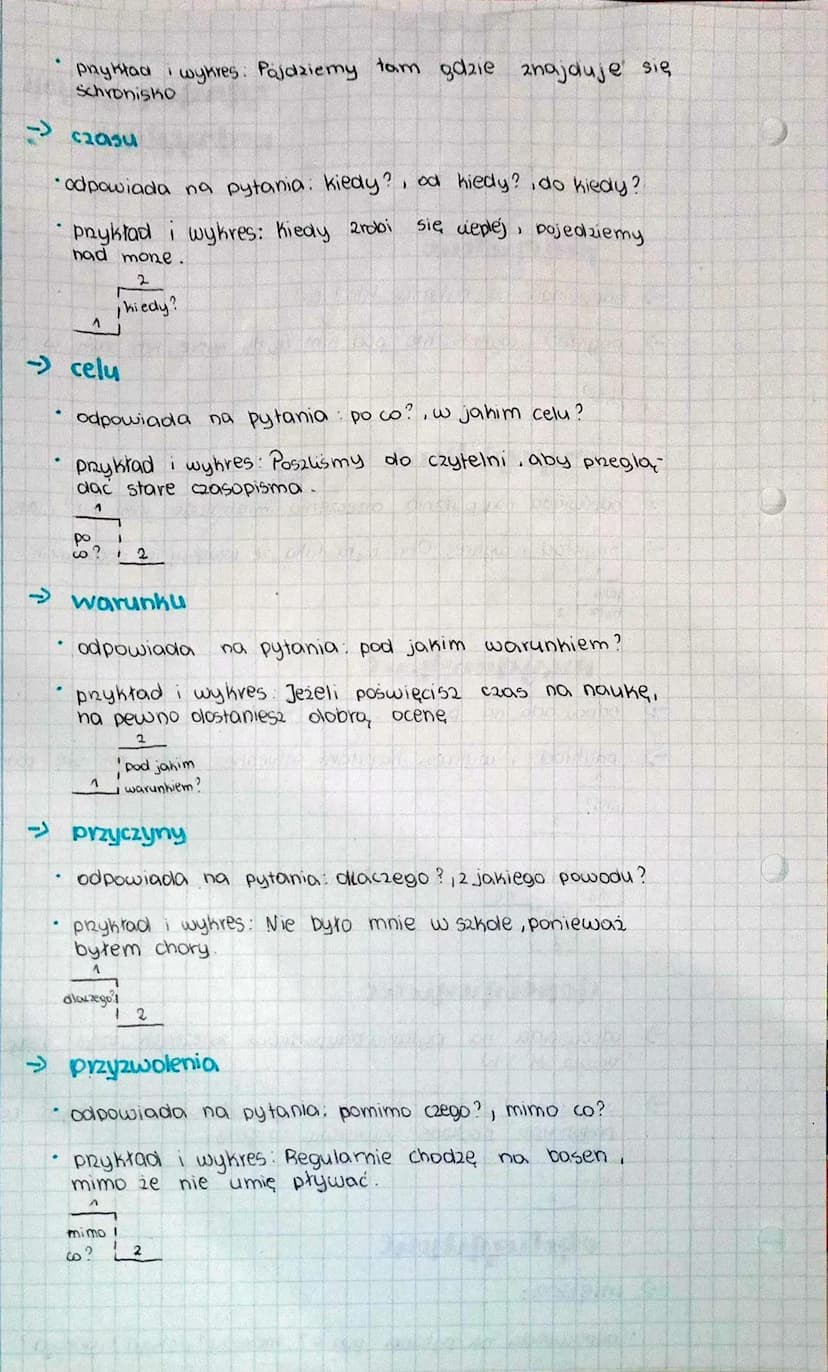 • przykład i wykres: Pójdziemy tam gdzie znajduje się
schronisko
→ czasu
• odpowiada na pytania: kiedy?, od kiedy?, do kiedy?
• przykład i wykres: Kiedy zrobi się cieplej, pojedziemy
nad morze.
2
kiedy?
1
→ celu
• odpowiada na pytania: po co?, w jakim celu?
• przykład i wykres: Poszliśmy do czytelni, aby przeglą-
dać stare czasopisma.
1
po
co? 2
→ warunku
• odpowiada na pytania: pod jakim warunkiem?
• przykład i wykres: Jeżeli poświęcisz czas na naukę,
na pewno dostaniesz dobrą ocenę
2
pod jakim
1 warunkiem?
→ przyczyny
• odpowiada na pytania: dlaczego?, z jakiego powodu?
• przykład i wykres: Nie było mnie w szkole, ponieważ
byłem chory.
1
dlaczego?
2
→ przyzwolenia
• odpowiada na pytania: pomimo czego?, mimo co?
• przykład i wykres: Regularnie chodzę na basen,
mimo że nie umię pływać.
1
mimo
co? 2